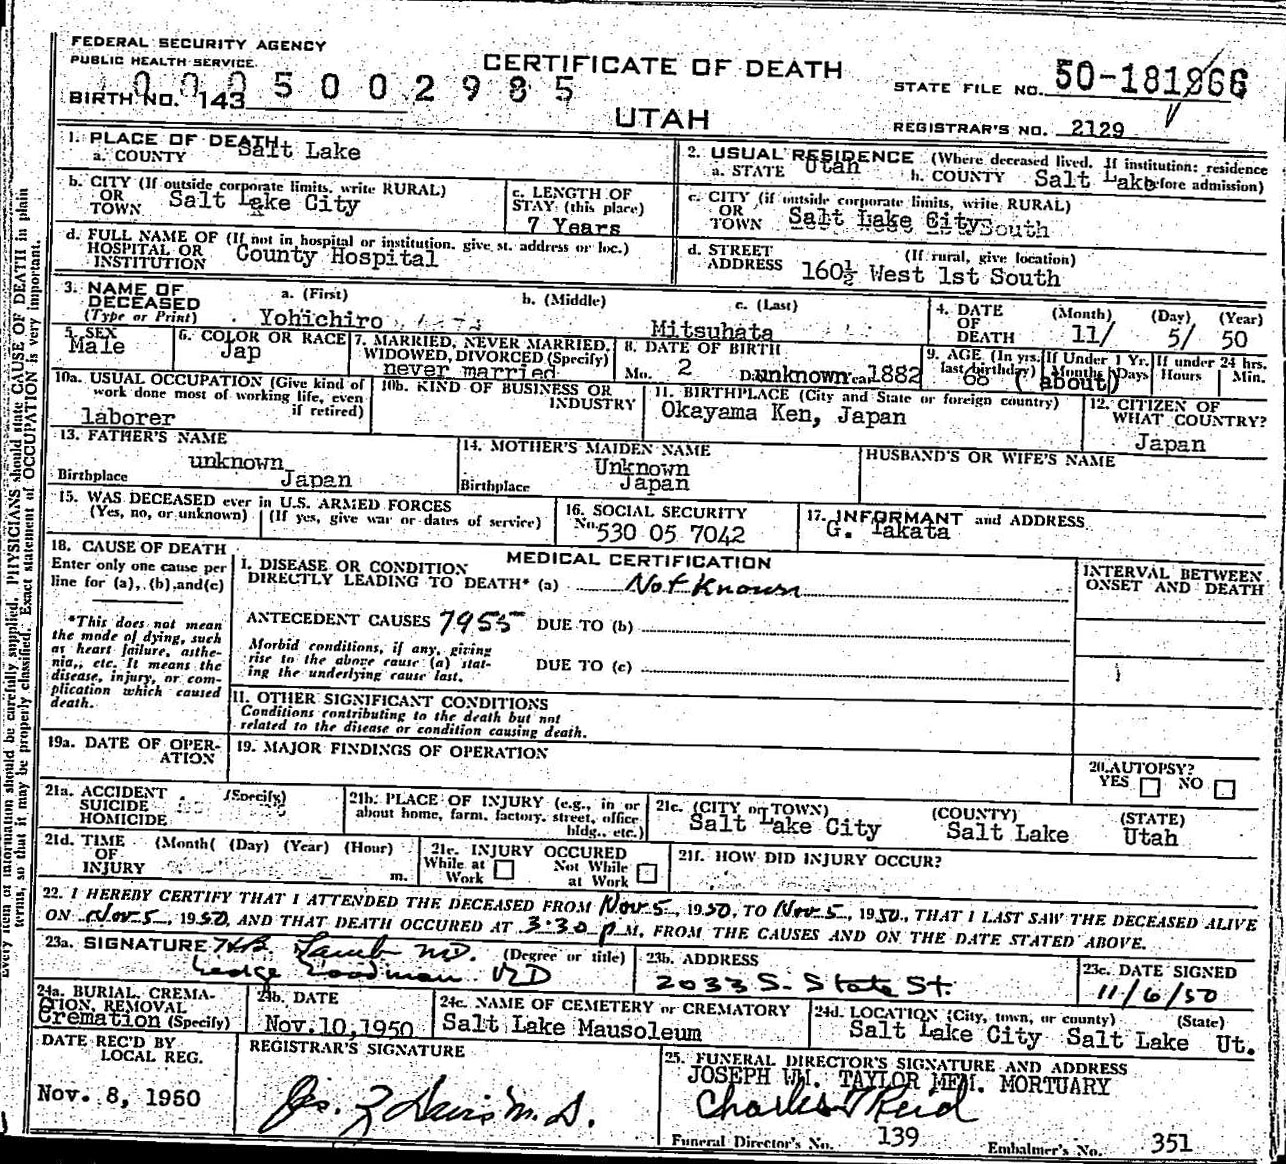 FEDERAL SECURITY AGENCY
PUBLIC HEALTH SERVICE
0005002985
BIRTH NO. 143
CERTIFICATE OF DEATH
UTAH
STATE FILE NO. 50-181866
REGISTRAR'S NO. 2129
1. PLACE OF DEATH
a. COUNTY Salt Lake
2. USUAL RESIDENCE (Where deceased lived. If institution: residence before admission)
a. STATE Utah b. COUNTY Salt Lake
b. CITY (If outside corporate limits, write RURAL)
OR
TOWN Salt Lake City
c. LENGTH OF
STAY (this place)
7 Years
c. CITY (if outside corporate limits, write RURAL)
OR
TOWN Salt Lake City South
d. FULL NAME OF (If not in hospital or institution, give st. address or loc.)
HOSPITAL OR
INSTITUTION County Hospital
d. STREET (If rural, give location)
ADDRESS 160½ West 1st South
3. NAME OF
DECEASED
(Type or Print)
a. (First) b. (Middle) c. (Last)
Yohichiro Mitsuhata
4. DATE
OF
DEATH
(Month) (Day) (Year)
11/ 5/ 50
5. SEX
Male
6. COLOR OR RACE
Jap
7. MARRIED, NEVER MARRIED,
WIDOWED, DIVORCED (Specify)
never married
8. DATE OF BIRTH
Mo. 2 Da. unknown Year 1882
9. AGE (In yrs. last birthday)
68 (about)
If Under 1 Yr.
Months Days
If under 24 hrs.
Hours Min.
10a. USUAL OCCUPATION (Give kind of
work done most of working life, even
if retired)
laborer
10b. KIND OF BUSINESS OR
INDUSTRY
11. BIRTHPLACE (City and State or foreign country)
Okayama Ken, Japan
12. CITIZEN OF
WHAT COUNTRY?
Japan
13. FATHER'S NAME
unknown
Birthplace Japan
14. MOTHER'S MAIDEN NAME
Unknown
Birthplace Japan
HUSBAND'S OR WIFE'S NAME
15. WAS DECEASED ever in U.S. ARMED FORCES
(Yes, no, or unknown) (If yes, give war or dates of service)
16. SOCIAL SECURITY
No. 530 05 7042
17. INFORMANT and ADDRESS
G. Takata
18. CAUSE OF DEATH
Enter only one cause per
line for (a), (b), and (c)
*This does not mean
the mode of dying, such
as heart failure, asthe-
nia, etc. It means the
disease, injury, or com-
plication which caused
death.
MEDICAL CERTIFICATION
I. DISEASE OR CONDITION
DIRECTLY LEADING TO DEATH* (a) Not Known
ANTECEDENT CAUSES 7955 DUE TO (b)
Morbid conditions, if any, giving
rise to the above cause (a) stat-
ing the underlying cause last.
DUE TO (c)
II. OTHER SIGNIFICANT CONDITIONS
Conditions contributing to the death but not
related to the disease or condition causing death.
INTERVAL BETWEEN
ONSET AND DEATH
19a. DATE OF OPER-
ATION
19. MAJOR FINDINGS OF OPERATION
20. AUTOPSY?
YES NO
21a. ACCIDENT (Specify)
SUICIDE
HOMICIDE
21b. PLACE OF INJURY (e.g., in or
about home, farm, factory, street, office
bldg., etc.)
21c. (CITY or TOWN) (COUNTY) (STATE)
Salt Lake City Salt Lake Utah
21d. TIME (Month) (Day) (Year) (Hour)
OF
INJURY m.
21e. INJURY OCCURED
While at Work Not While at Work
21f. HOW DID INJURY OCCUR?
22. I HEREBY CERTIFY THAT I ATTENDED THE DECEASED FROM Nov 5, 1950, TO Nov 5, 1950, THAT I LAST SAW THE DECEASED ALIVE
ON Nov 5, 1950, AND THAT DEATH OCCURED AT 3:30 P M, FROM THE CAUSES AND ON THE DATE STATED ABOVE.
23a. SIGNATURE Lamb MD. (Degree or title)
Goodman MD
23b. ADDRESS
2033 S. State St.
23c. DATE SIGNED
11/6/50
24a. BURIAL, CREMA-
TION, REMOVAL
Cremation (Specify)
24b. DATE
Nov. 10, 1950
24c. NAME OF CEMETERY or CREMATORY
Salt Lake Mausoleum
24d. LOCATION (City, town, or county) (State)
Salt Lake City Salt Lake Ut.
DATE REC'D BY
LOCAL REG.
Nov. 8, 1950
REGISTRAR'S SIGNATURE
Jas. Z Davis M.D.
25. FUNERAL DIRECTOR'S SIGNATURE AND ADDRESS
JOSEPH WM. TAYLOR MEM. MORTUARY
Charles T Reid
Funeral Director's No. 139 Embalmer's No. 351
Every item of information should be carefully supplied. PHYSICIANS should state CAUSE OF DEATH in plain
terms, so that it may be properly classified. Exact statement of OCCUPATION is very important.